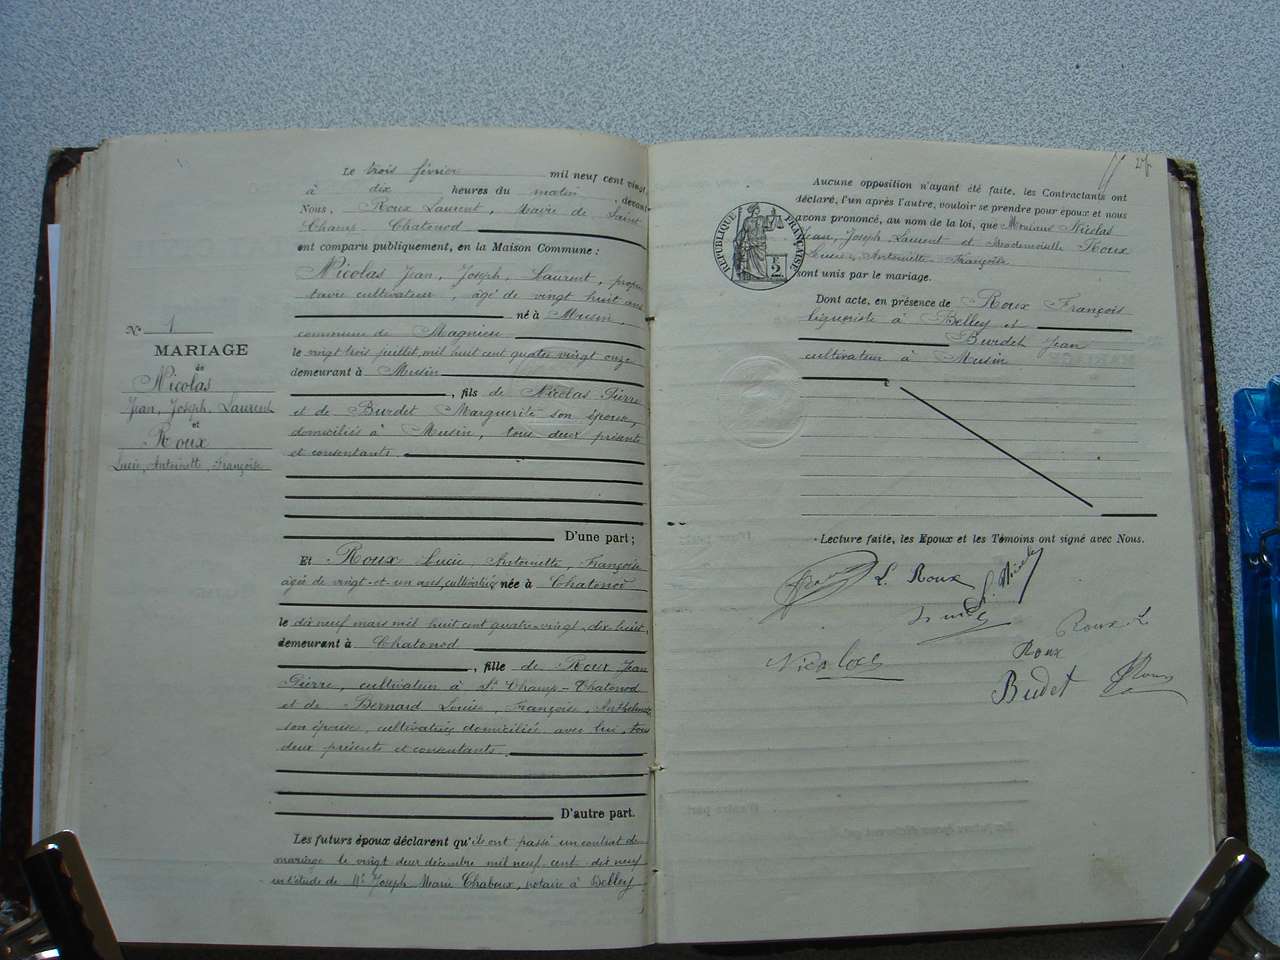 N° 1
MARIAGE
de
Nicolas
Jean, Joseph, Laurent
et
Roux
Lucie, Antoinette, Françoise
Le trois février mil neuf cent vingt,
à dix heures du matin, devant
Nous, Roux Laurent, Maire de Saint
Champ Chatonod
ont comparu publiquement, en la Maison Commune :
Nicolas Jean, Joseph, Laurent, proprié
taire cultivateur, âgé de vingt huit ans
né à Musin,
commune de Magnieu
le vingt trois juillet mil huit cent quatre vingt onze
demeurant à Musin
, fils de Nicolas Pierre
et de Burdet Marguerite son épouse,
domiciliés à Musin, tous deux présents
et consentants
D'une part ;
Et Roux Lucie Antoinette, Françoise
âgée de vingt-et-un ans, cultivatrice née à Chatonod
le dix neuf mars mil huit cent quatre-vingt-dix huit,
demeurant à Chatonod
, fille de Roux Jean
Pierre, cultivateur à St Champ-Chatonod
et de Bernard Louise, Françoise, Anthelmette
son épouse, cultivatrice domiciliée avec lui, tous
deux présents et consentants
D'autre part.
Les futurs époux déclarent qu'ils ont passé un contrat de
mariage le vingt deux décembre mil neuf cent dix neuf
en l'étude de Me Joseph Marie Chaboux, notaire à Belley
Aucune opposition n'ayant été faite, les Contractants ont
déclaré, l'un après l'autre, vouloir se prendre pour époux et nous
avons prononcé, au nom de la loi, que Monsieur Nicolas
Jean, Joseph Laurent et Mademoiselle Roux
Lucie, Antoinette Françoise
sont unis par le mariage.
RÉPUBLIQUE FRANÇAISE
2
Dont acte, en présence de Roux François
liquoriste à Belley et
Burdet Jean
cultivateur à Musin
Lecture faite, les Epoux et les Témoins ont signé avec Nous.
L. Roux
Roux L
Nicolas
Roux
Budet
Roux